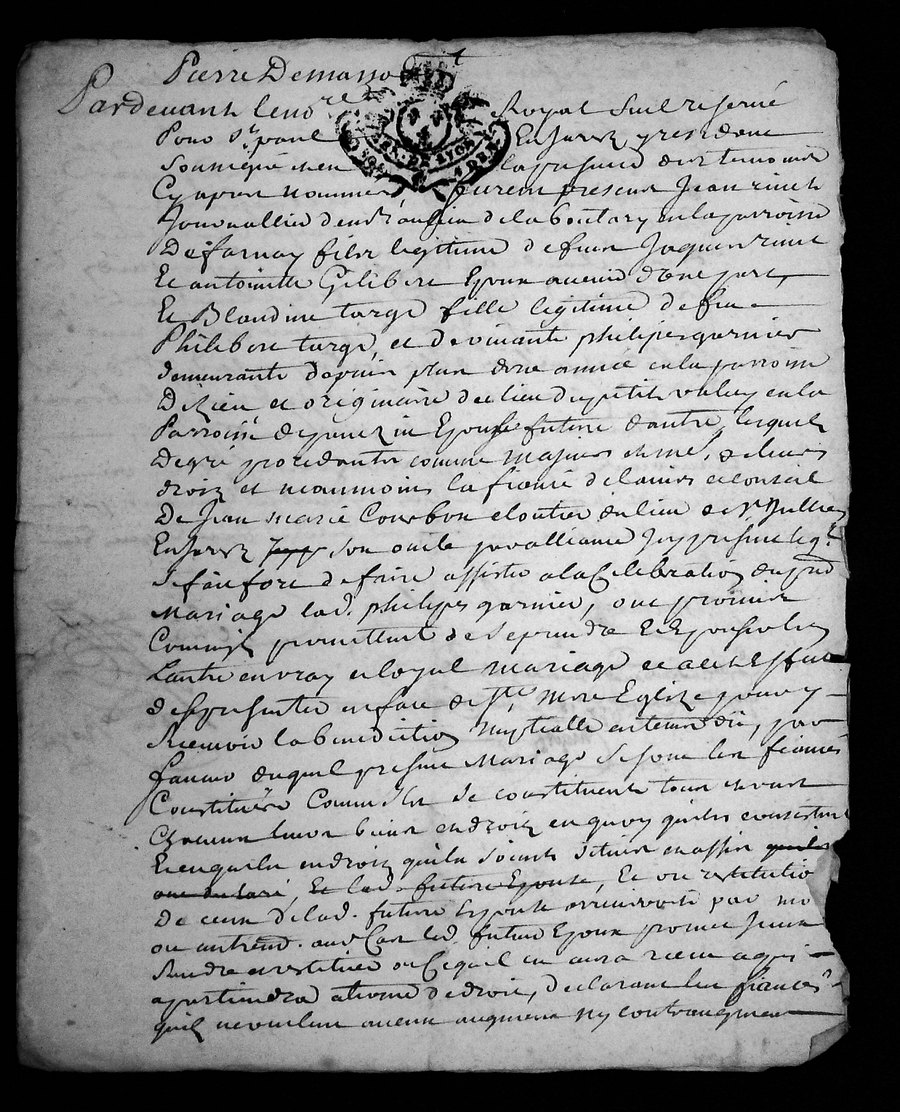 Pierre Demasso
Pardevant le no.re Royal Seul reservé
Pour St. paul En Jarez y residant
Soussigné en presence des temoins
Cy apres nommes furent presens Jean
Journallier demt. au lieu de la boutary en la parroisse
De farnay fils legitime de feu Jaques
Et antoinette Gilibert Epoux avenir d'une part,
Et Blandine targe fille legitime de feu
Philibert targe, et de vivante philipes garnier
demeurante depuis plus d'une année en la parroisse
De et originaire du lieu du petit valuy en la
Parroisse de Epouse future d'autre, lesquels
De gré procedants comme majeurs et me. de leurs
droiz et neanmoins la fiancée de l'advis et conseil
De Jean marie Courbon cloutier du lieu de St. Jullien
En Jarez son oncle par alliance Icy present leql.
Se fai fort de faire assister a la Celebration du pnt
Mariage lad. philipes garnier, ont promis
Comme ils promettent de Se prendre Et Epouser l'un
L'autre en vray et loyal mariage et a cet Effet
de Se presenter en face de Ste. mere Eglise pour y
Recevoir la benediction Nuptialle entemdû, par
faveur duquel present Mariage Se sont les fiancés
Constitués Comme ils Se constituent tous et uns
Chacuns leurs biens et droiz en quoy qu'ils consistent
Et en quels endroiz qu'ils Soients situés et assis quils
ont declaré, Et lad. future Epouse, Et ou restitutio
De ceux de lad. future Epouse arriveroit par mo
ou autremt. aud. Cas led. futur Epoux promet Iceux
Rendre et restituer ou Ce quil en aura reçu a qui
apartiendra a forme de droit, declarant les fiancés
quils ne veulent aucun augment ny contraugment